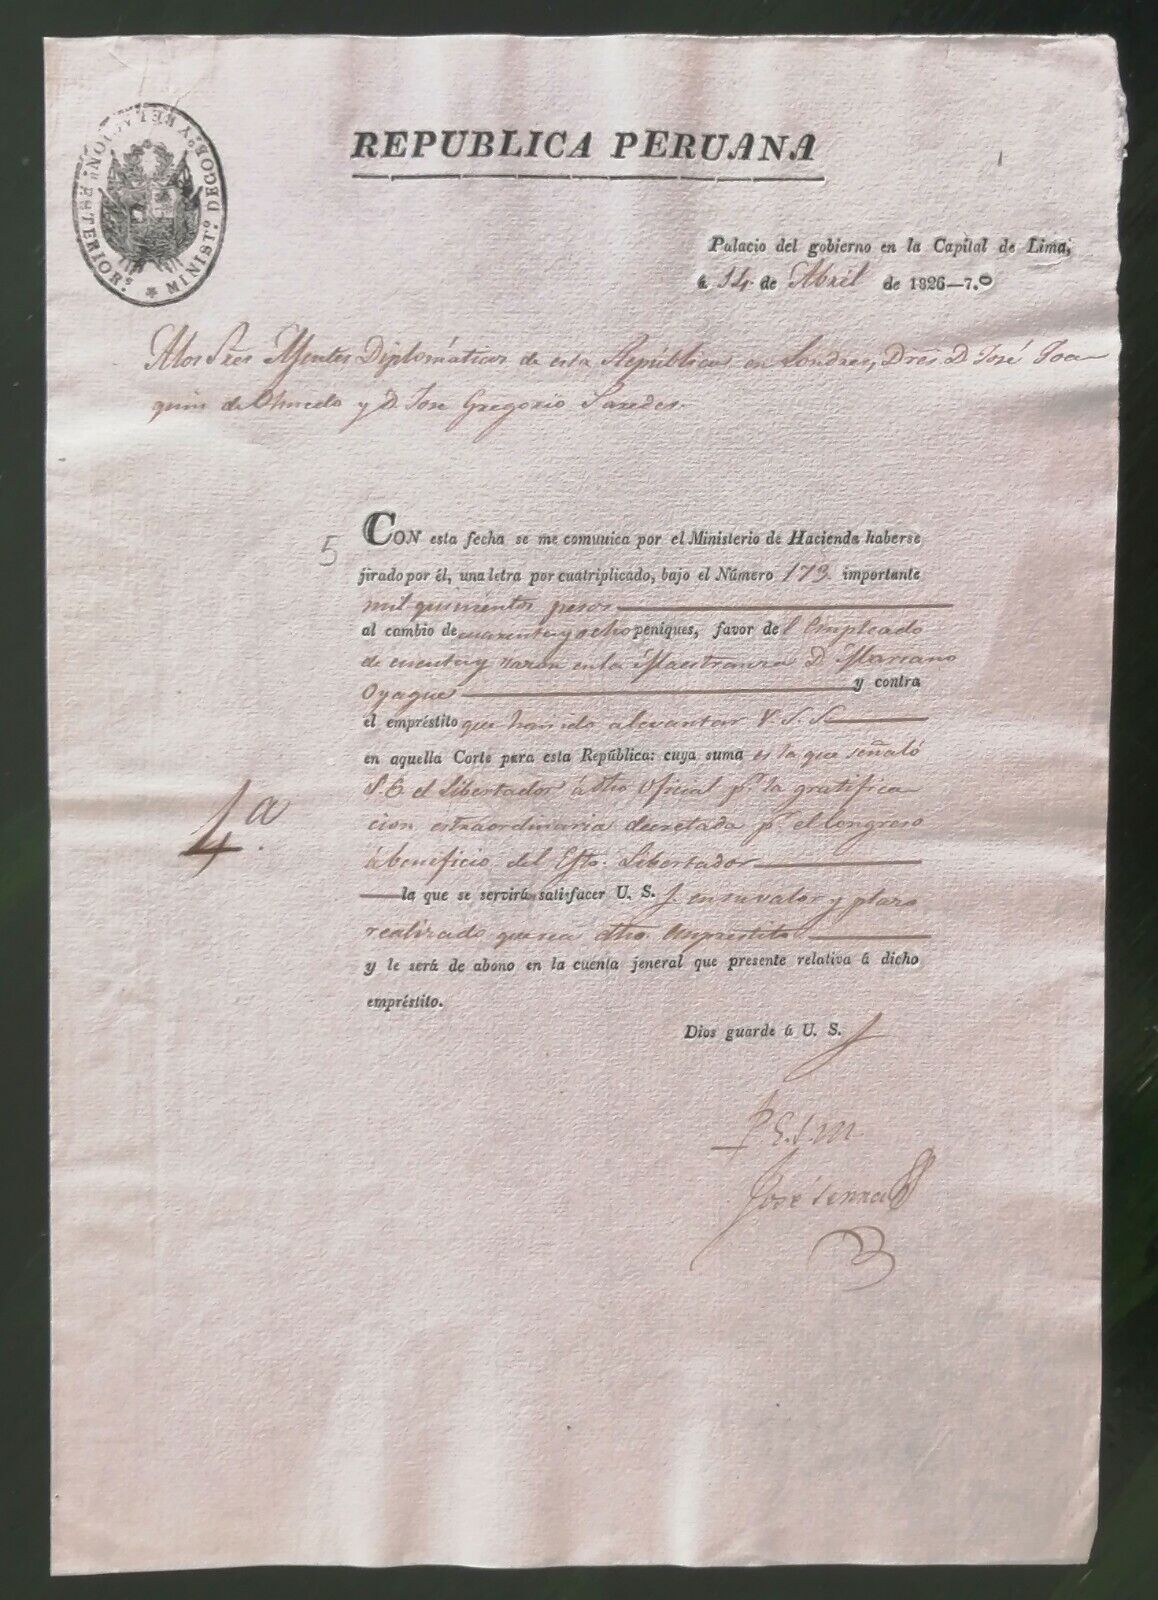 MINIST.º DE GOB.º Y RELACION.ˢ ESTERIOR.ˢ
REPUBLICA PERUANA
Palacio del gobierno en la Capital de Lima,
á 14. de Abril de 1826—7.º
A los Sres Agentes Diplomáticos de esta República en Londres, Dres D. José Joa
quin de Olmedo y D. José Gregorio Paredes.
5
CON esta fecha se me comunica por el Ministerio de Hacienda haberse
jirado por él, una letra por cuatriplicado, bajo el Número 173. importante
mil quinientos pesos
al cambio de cuarenta y ocho peniques, favor del Empleado
de cuenta y razon en la Maestranza D. Mariano
Oyague y contra
el empréstito que han ido a levantar V.S.S
en aquella Corte para esta República: cuya suma es la que señaló
S.E el Libertador á dho Oficial pr. la gratifica
cion extraordinaria decretada pr. el Congreso
á beneficio del Ejto. Libertador
la que se servirá satisfacer U. S. en su valor y plazo
realizado que sea dho. Empréstito
y le será de abono en la cuenta jeneral que presente relativa á dicho
empréstito.
4.ª
Dios guarde á U. S.
P.E.S.M
José Serra